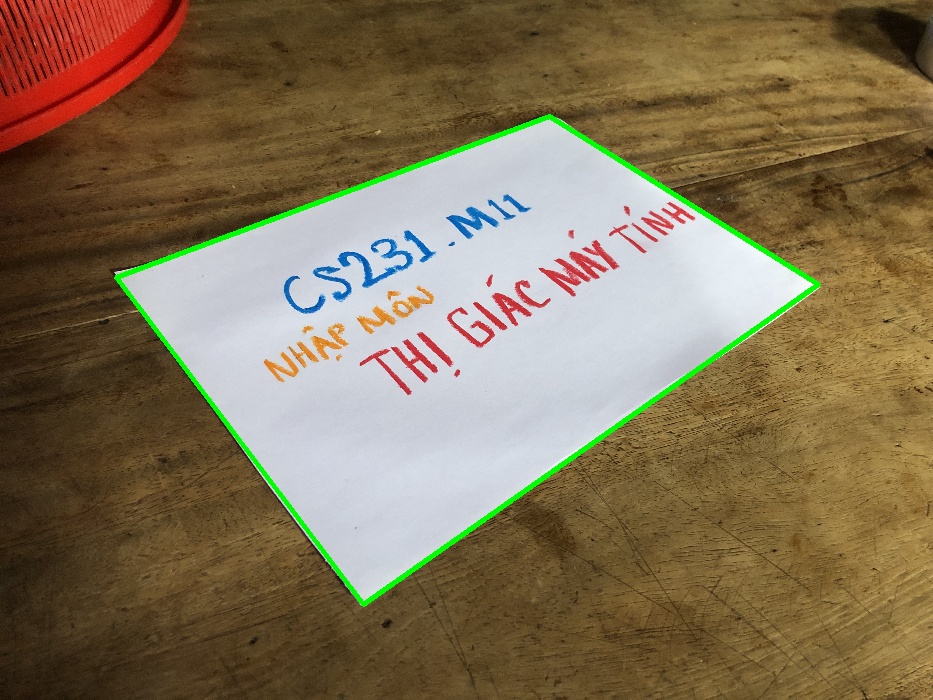 CS231.M11
NHẬP MÔN
THỊ GIÁC MÁY TÍNH